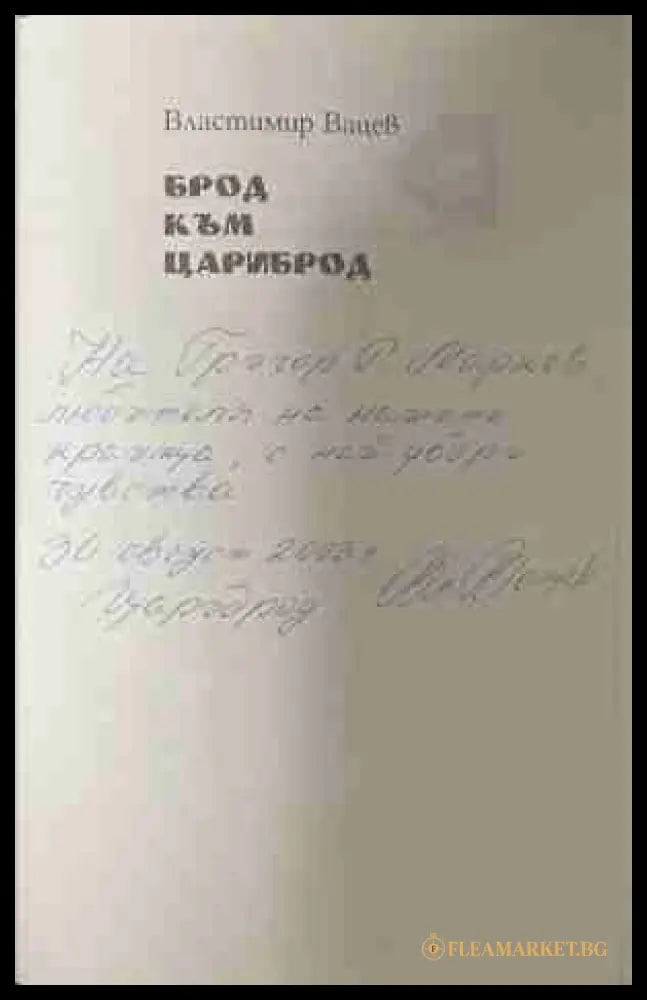 Властимир Вацев
БРОД
КЪМ
ЦАРИБРОД
На Григор Марков
любителя на нашето
с най добри
чувства
30 август
Цариброд
FLEAMARKET.BG